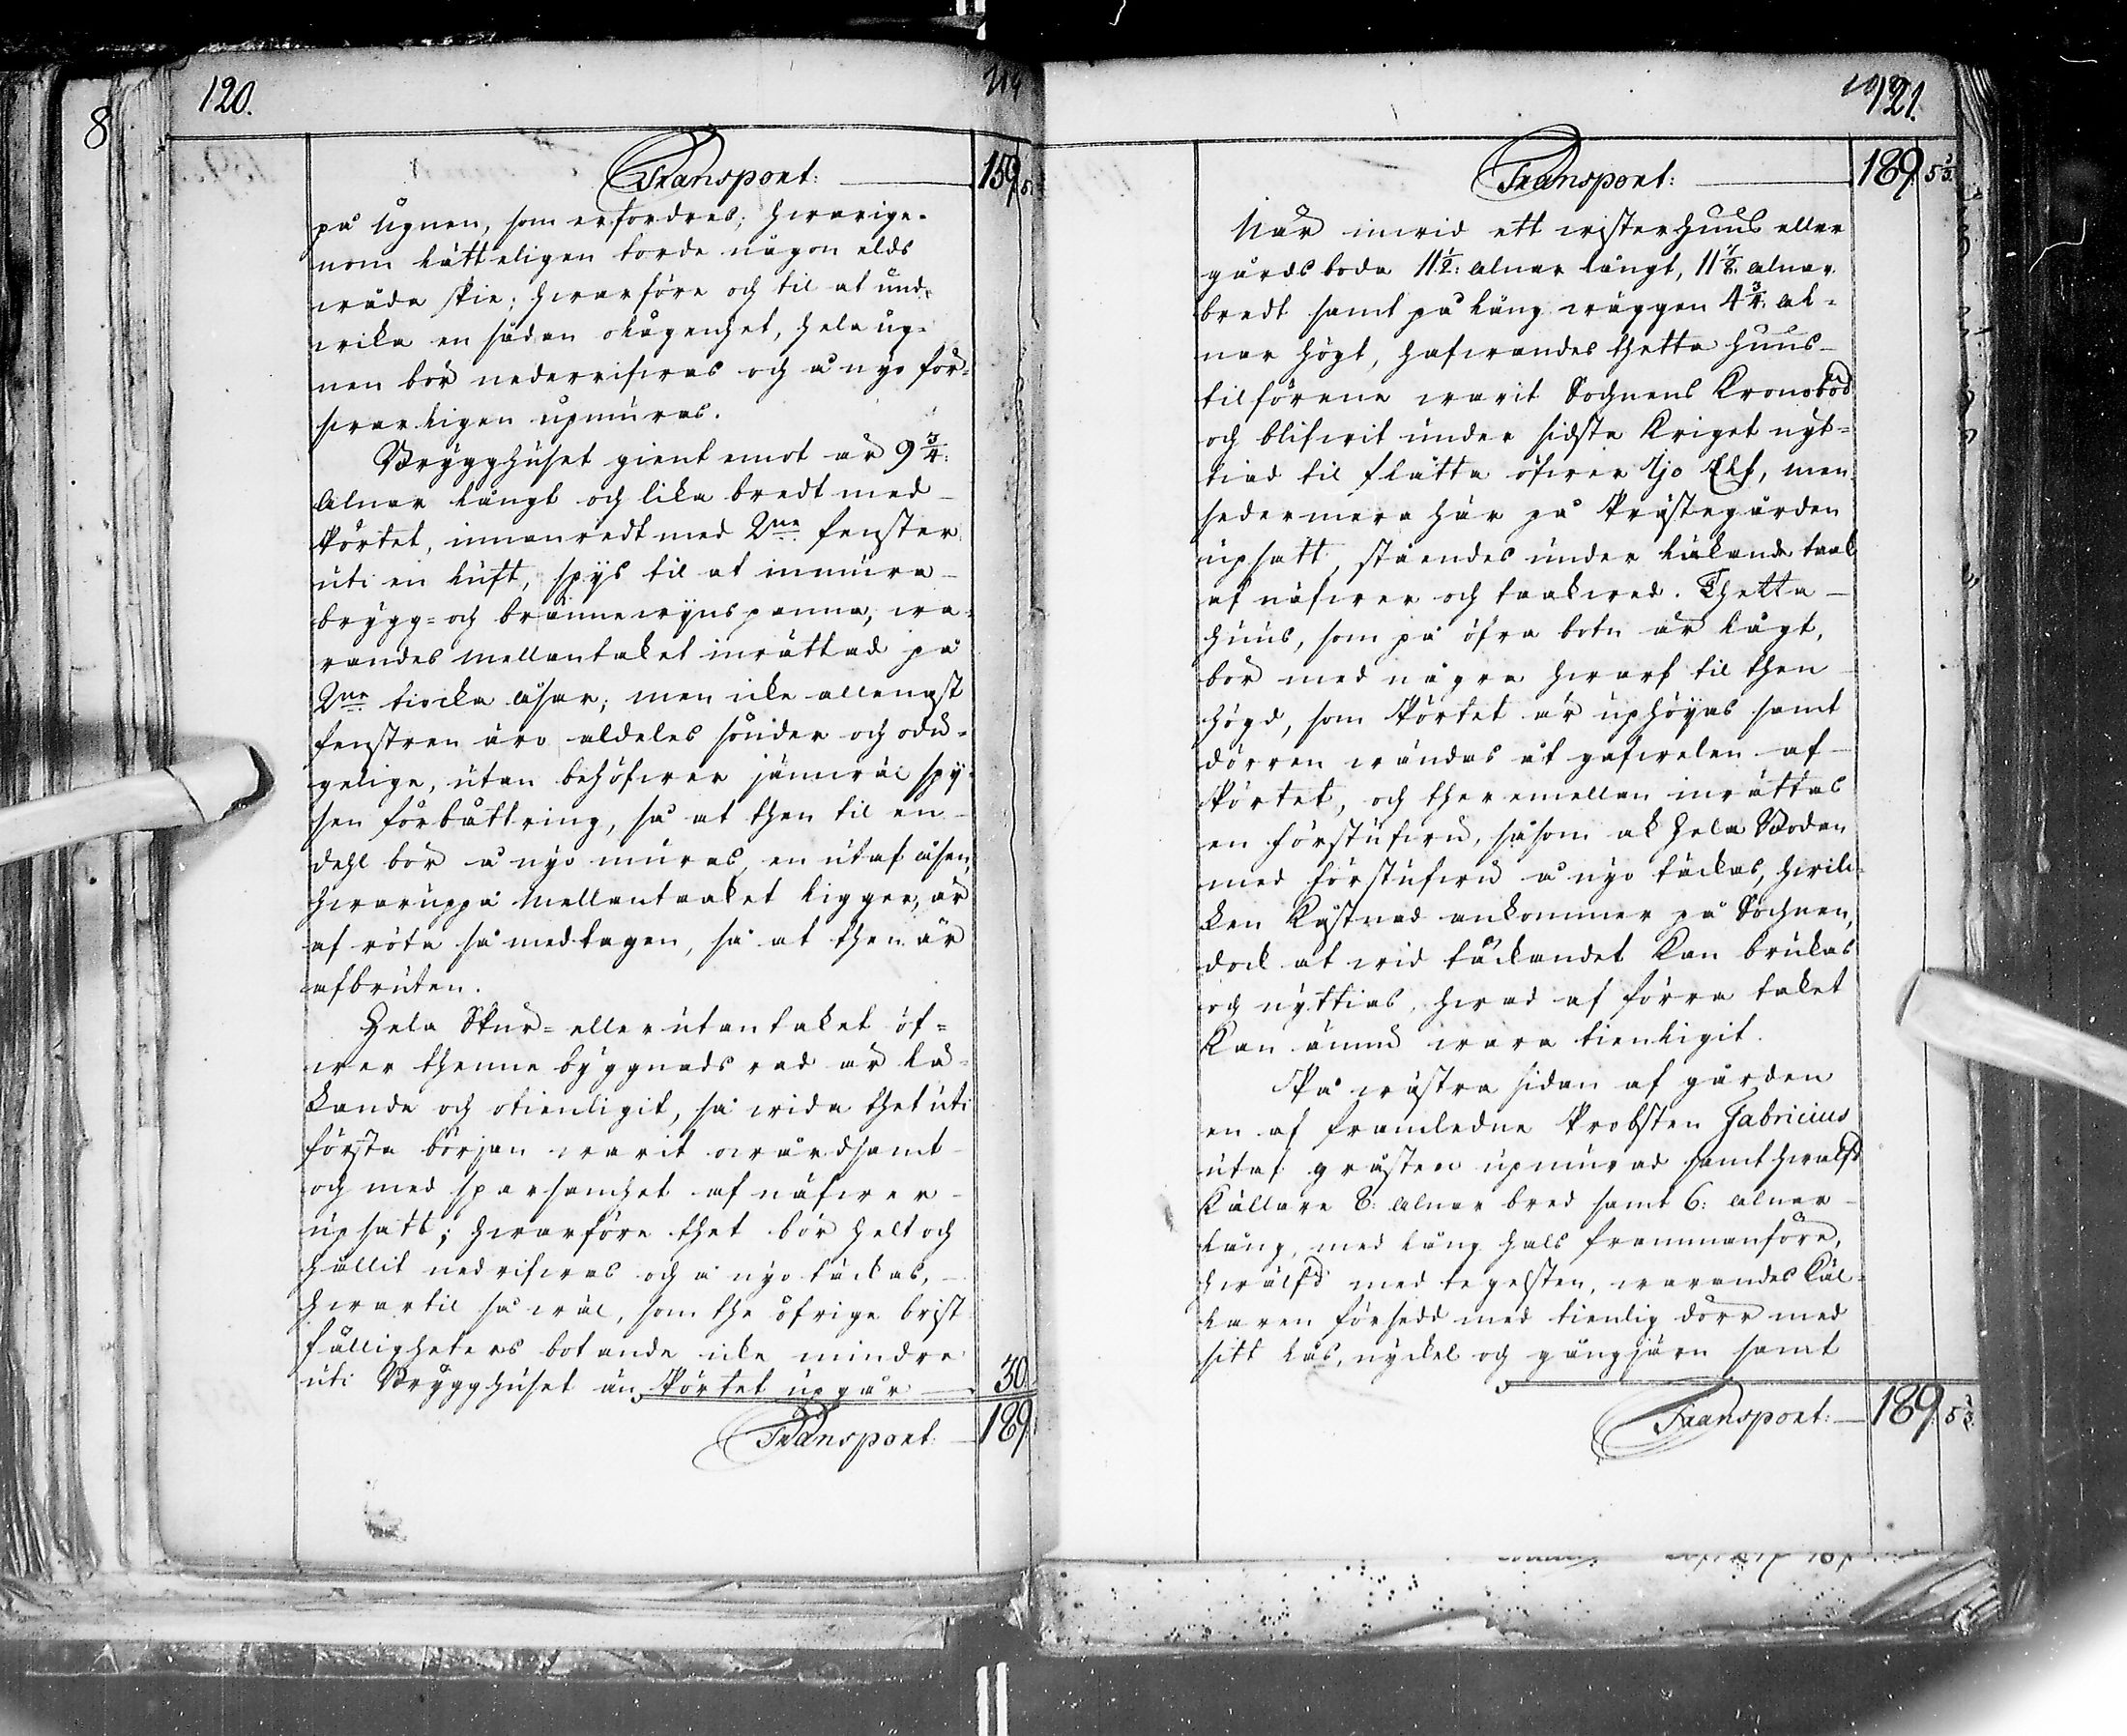 8
120.
Transport: 159 5.
på Ugnen, som erfordras; hwarige-
nom lätteligen torde någon elds
wåda skie; hwarföre och til at und-
wika en sådan olägenhet, hela ug-
nen bör nederrifwas och å nyo för-
swarligen upmuras.
Brygghuset gient emot är 9 3/4:
Alnar långt och lika bredt med
Pörtet, innanredt med 2ne fenster
uti en luft, spijs til at inmura
brygg= och bränewijnspanna, wa-
randes mellantaket inrättad på
2ne tiocka åsar; men icke allenast
fenstren äro aldeles sönder och odu-
gelige, utan behöfwer jämwäl spij-
sen förbättring, så at then til en
dehl bör å nyo muras, en utaf åsen,
hwaruppå mellantaaket ligger, är
af röta så medtagen, så at then är
afbruten.
Hela Skur= eller utantaket öf=
wer thenne byggnads rad är lä-
kande och otienligit, så wida thet uti
första början warit owårdsamt
och med sparsamhet af näfwer
upsatt; hwarföre thet bör helt och
hållit nedrifwas och å nyo täckas,
hwartil så wäl, som the öfrige brist-
fälligheters botande icke mindre
uti Brygghuset än Pörtet upgår 30
Transport: 189.
121.
Transport: 189. 5 1/3.
När inwid ett wisterhuus eller
gårdsboda 11 1/2: alnar långt, 11 7/8. alnar
bredt samt på lång wäggen 4 3/4. al-
nar högt, hafwandes thetta huus
tilförene warit Sochnens Kronobod
och blifwit under sidsta Kriget nyt=
tiad til flätta öfwer Ijo Elf, men
sedermera här på Prästegården
upsatt, ståendes under läkande taak
af näfwer och taakwed. Thetta
huus, som på öfra botn är lågt,
bör med några hwarf til then
högd, som Pörtet är uphöyas samt
dörren wändas åt gafwelen af
Pörtet, och theremellan inrättas
en förstufwu, såsom ok hela Boden
med förstufwu å nyo täckas, hwil-
ken Kåstnad ankommer på Sochnen,
dock at wid täckandet Kan brukas
och nyttias, hwad af förra taket
Kan ännu wara tienligit.
På wästra sidan af gården
en af framledne Probsten Fabricius
utaf gråsten upmurad samt hwälfd
Källare 8: alnar bred samt 6: alnar
lång, med lång hals frammanföre,
hwälfd med tegelsten, warandes Käl-
laren försedd med tienlig dörr med
sitt lås, nyckel och gångjärn samt
Transport: 189. 5 1/3.